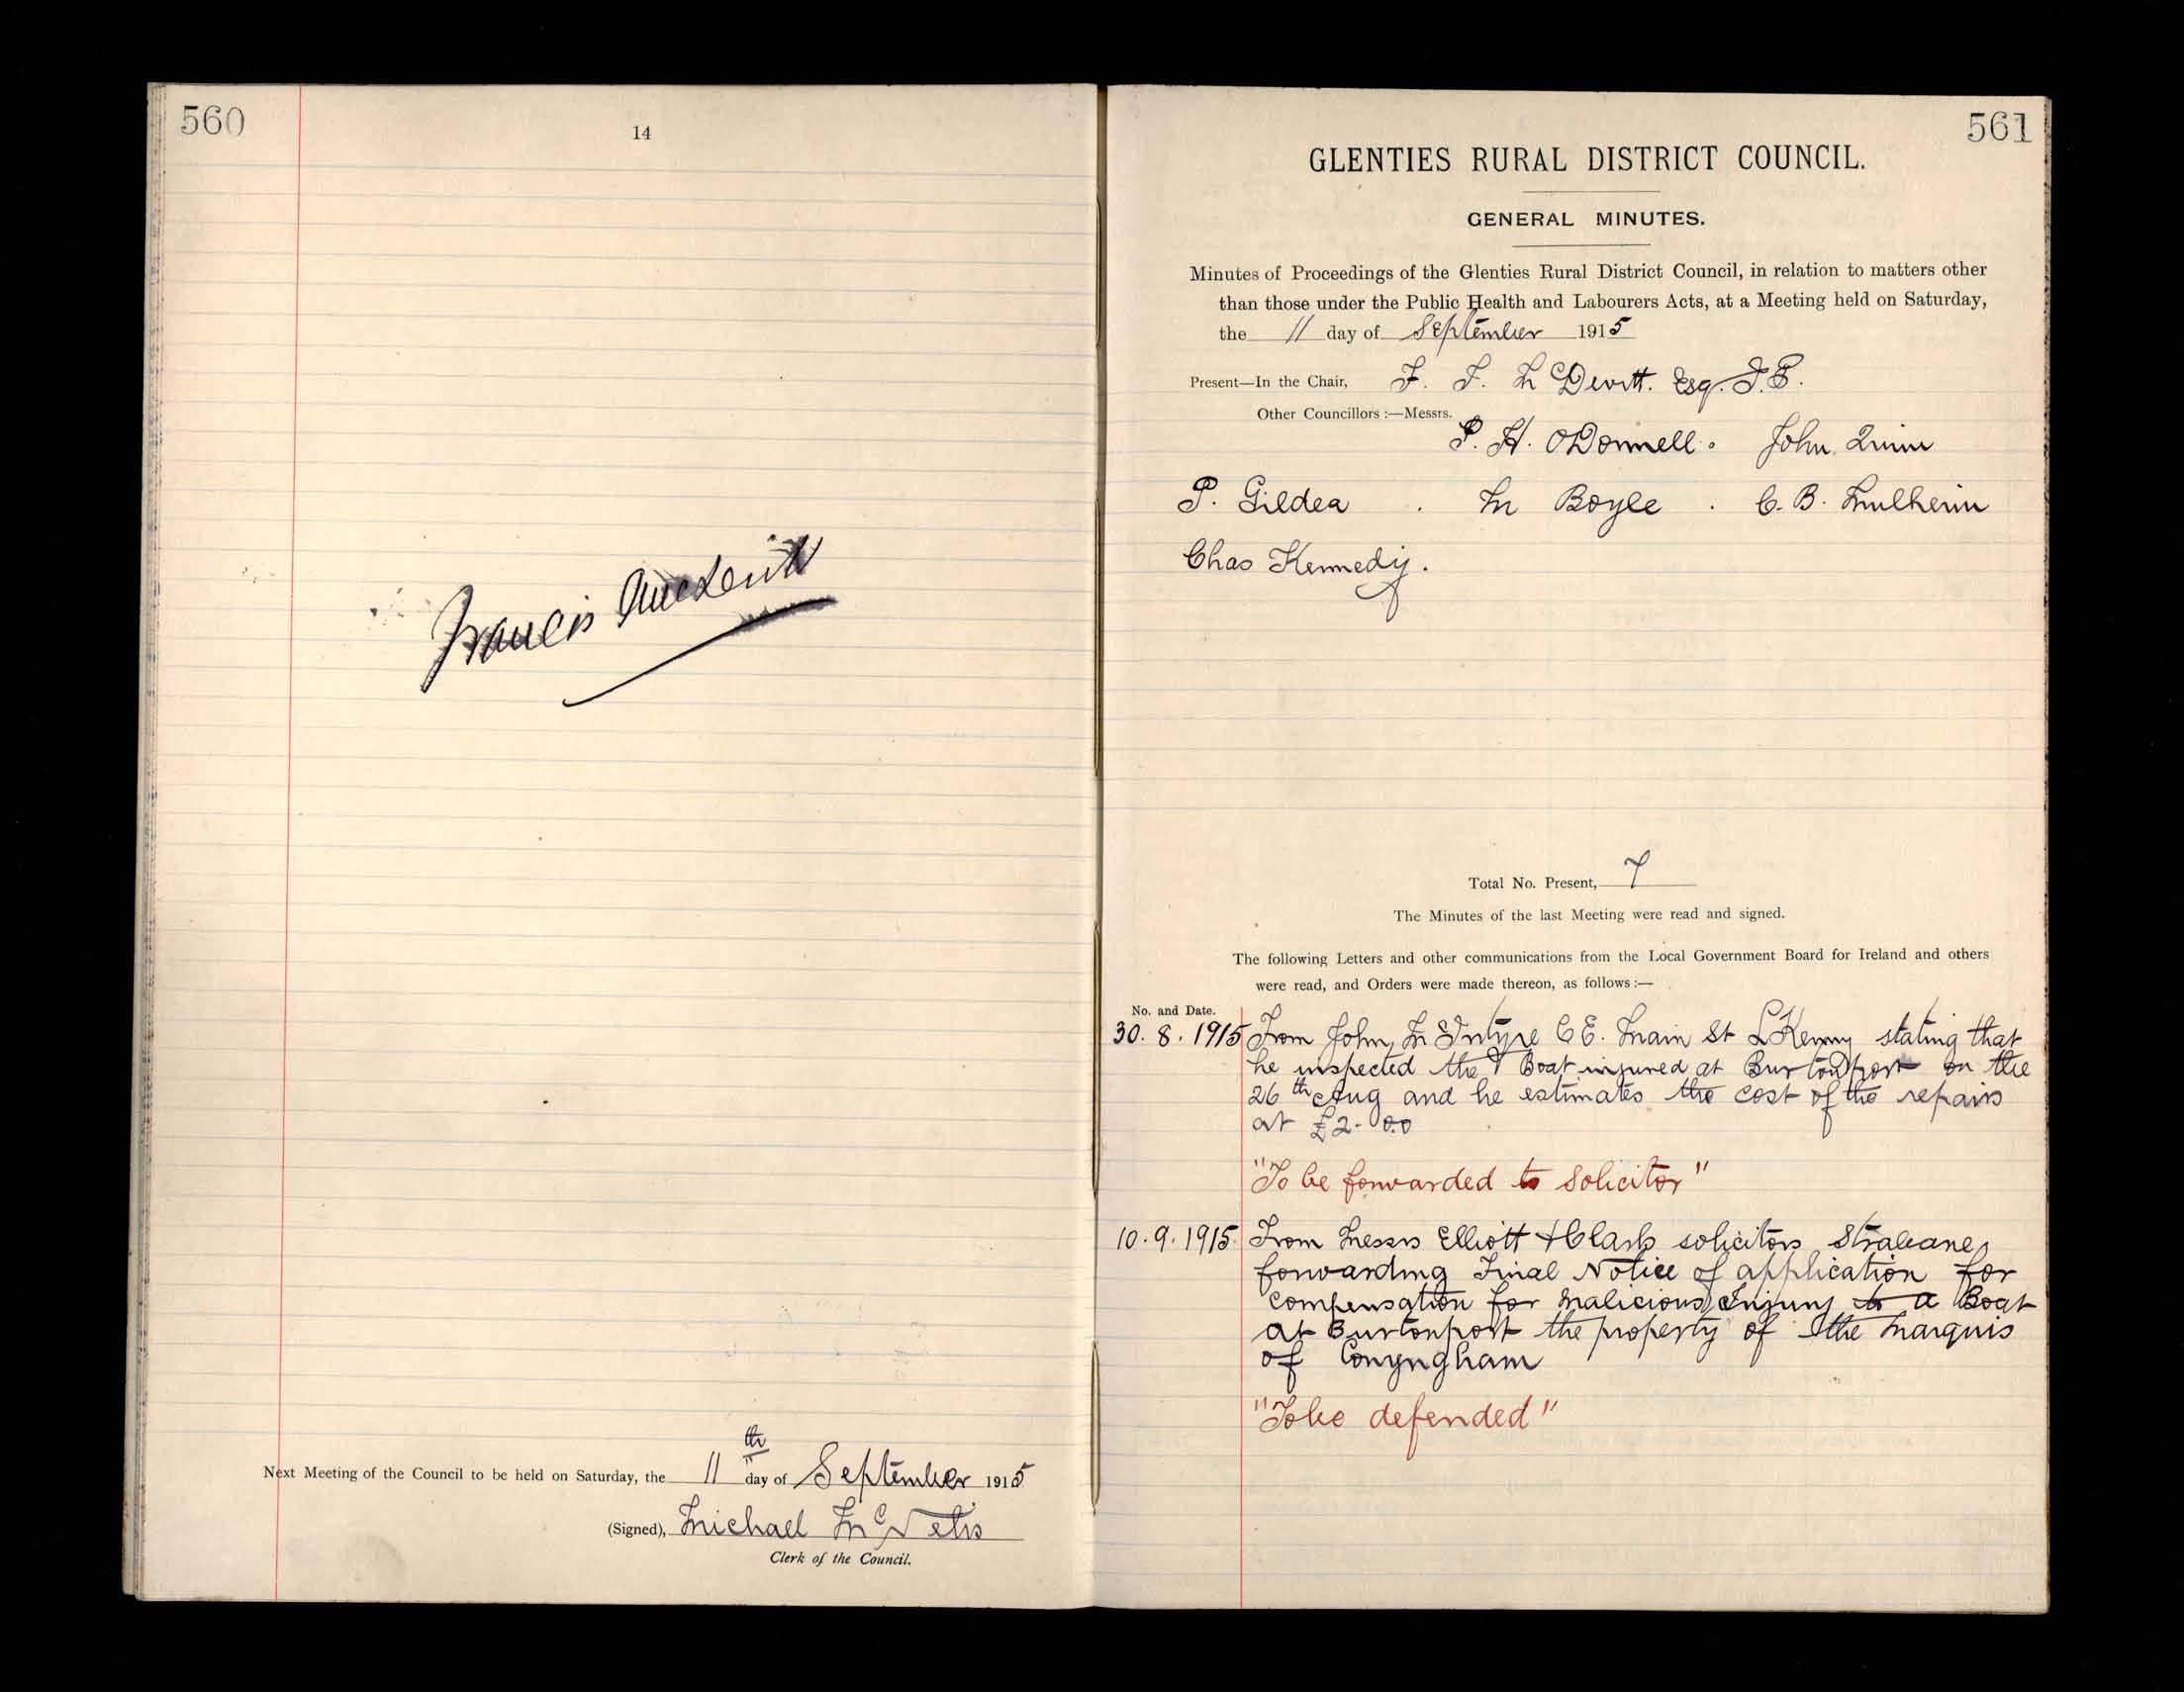 560
14
Francis McDevitt
Next Meeting of the Council to be held on Saturday, the 11th day of September 1915
(Signed), Michael McNelis
Clerk of the Council.
561
GLENTIES RURAL DISTRICT COUNCIL.
GENERAL MINUTES.
Minutes of Proceedings of the Glenties Rural District Council, in relation to matters other
than those under the Public Health and Labourers Acts, at a Meeting held on Saturday,
the 11 day of September 1915
Present—In the Chair, F. J. McDevitt. Esq. J.P.
Other Councillors :—Messrs.
P. H. ODonnell. John Quinn
P. Gildea . M Boyle . C. B. Mulhern
Chas Kennedy.
Total No. Present, 7
The Minutes of the last Meeting were read and signed.
The following Letters and other communications from the Local Government Board for Ireland and others
were read, and Orders were made thereon, as follows :—
No. and Date.
30. 8. 1915 From John McIntyre C E. Main St LKenny stating that
he inspected the Boat injured at Burtonport on the
26th Aug and he estimates the cost of the repairs
at £2-0.0
"To be forwarded to Solicitor"
10. 9. 1915 From Messrs Elliott & Clark solicitors Strabane
forwarding Final Notice of application for
compensation for Malicious Injury to a Boat
at Burtonport the property of the Marquis
of Conyngham
"To be defended"